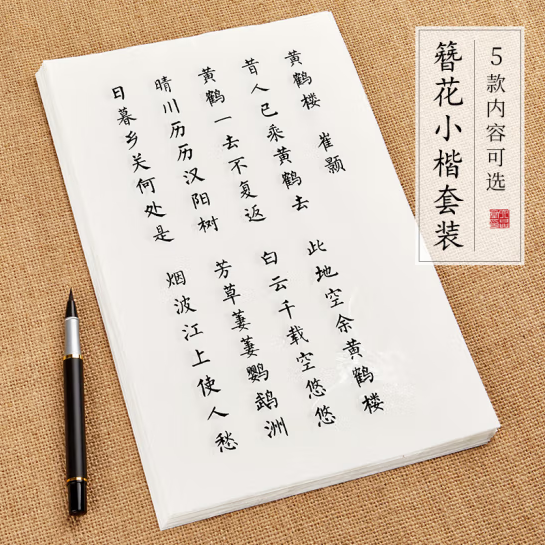 5款内容可选
簪花小楷套装
黄鹤楼 崔颢
昔人已乘黄鹤去 此地空余黄鹤楼
黄鹤一去不复返 白云千载空悠悠
晴川历历汉阳树 芳草萋萋鹦鹉洲
日暮乡关何处是 烟波江上使人愁